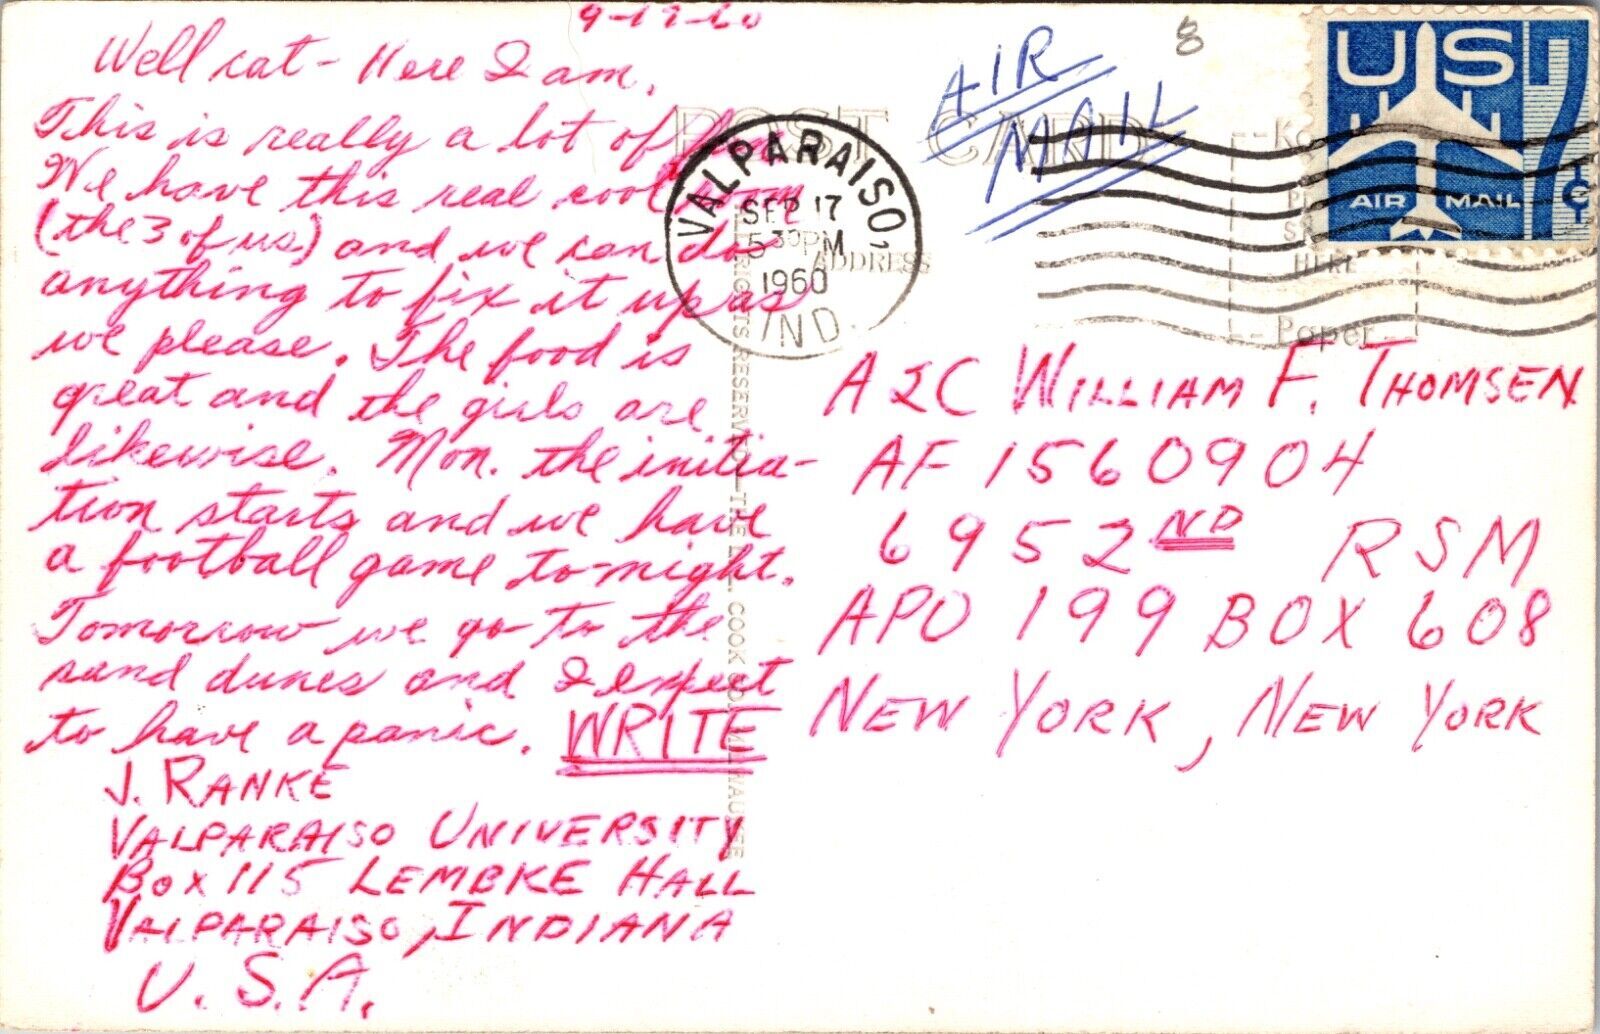 9-17-60
Well cat - Here I am.
This is really a lot of fun
We have this real cool room
(the 3 of us) and we can do
anything to fix it up as
we please. The food is
great and the girls are
likewise. Mon. the initia-
tion starts and we have
a football game to-night.
Tomorrow we go to the
sand dunes and I expect
to have a panic. WRITE
J. RANKE
VALPARAISO UNIVERSITY
BOX 115 LEMBKE HALL
VALPARAISO, INDIANA
U.S.A.
POST CARD
AIR
MAIL
8
VALPARAISO,
SEP 17
5 30 PM
1960
IND.
ADDRESS
US
7¢
AIR MAIL
HERE
Paper
A2C WILLIAM F. THOMSEN
AF 1560904
6952ND RSM
APO 199 BOX 608
NEW YORK, NEW YORK
ALL RIGHTS RESERVED—THE L.L. COOK CO., MILWAUKEE